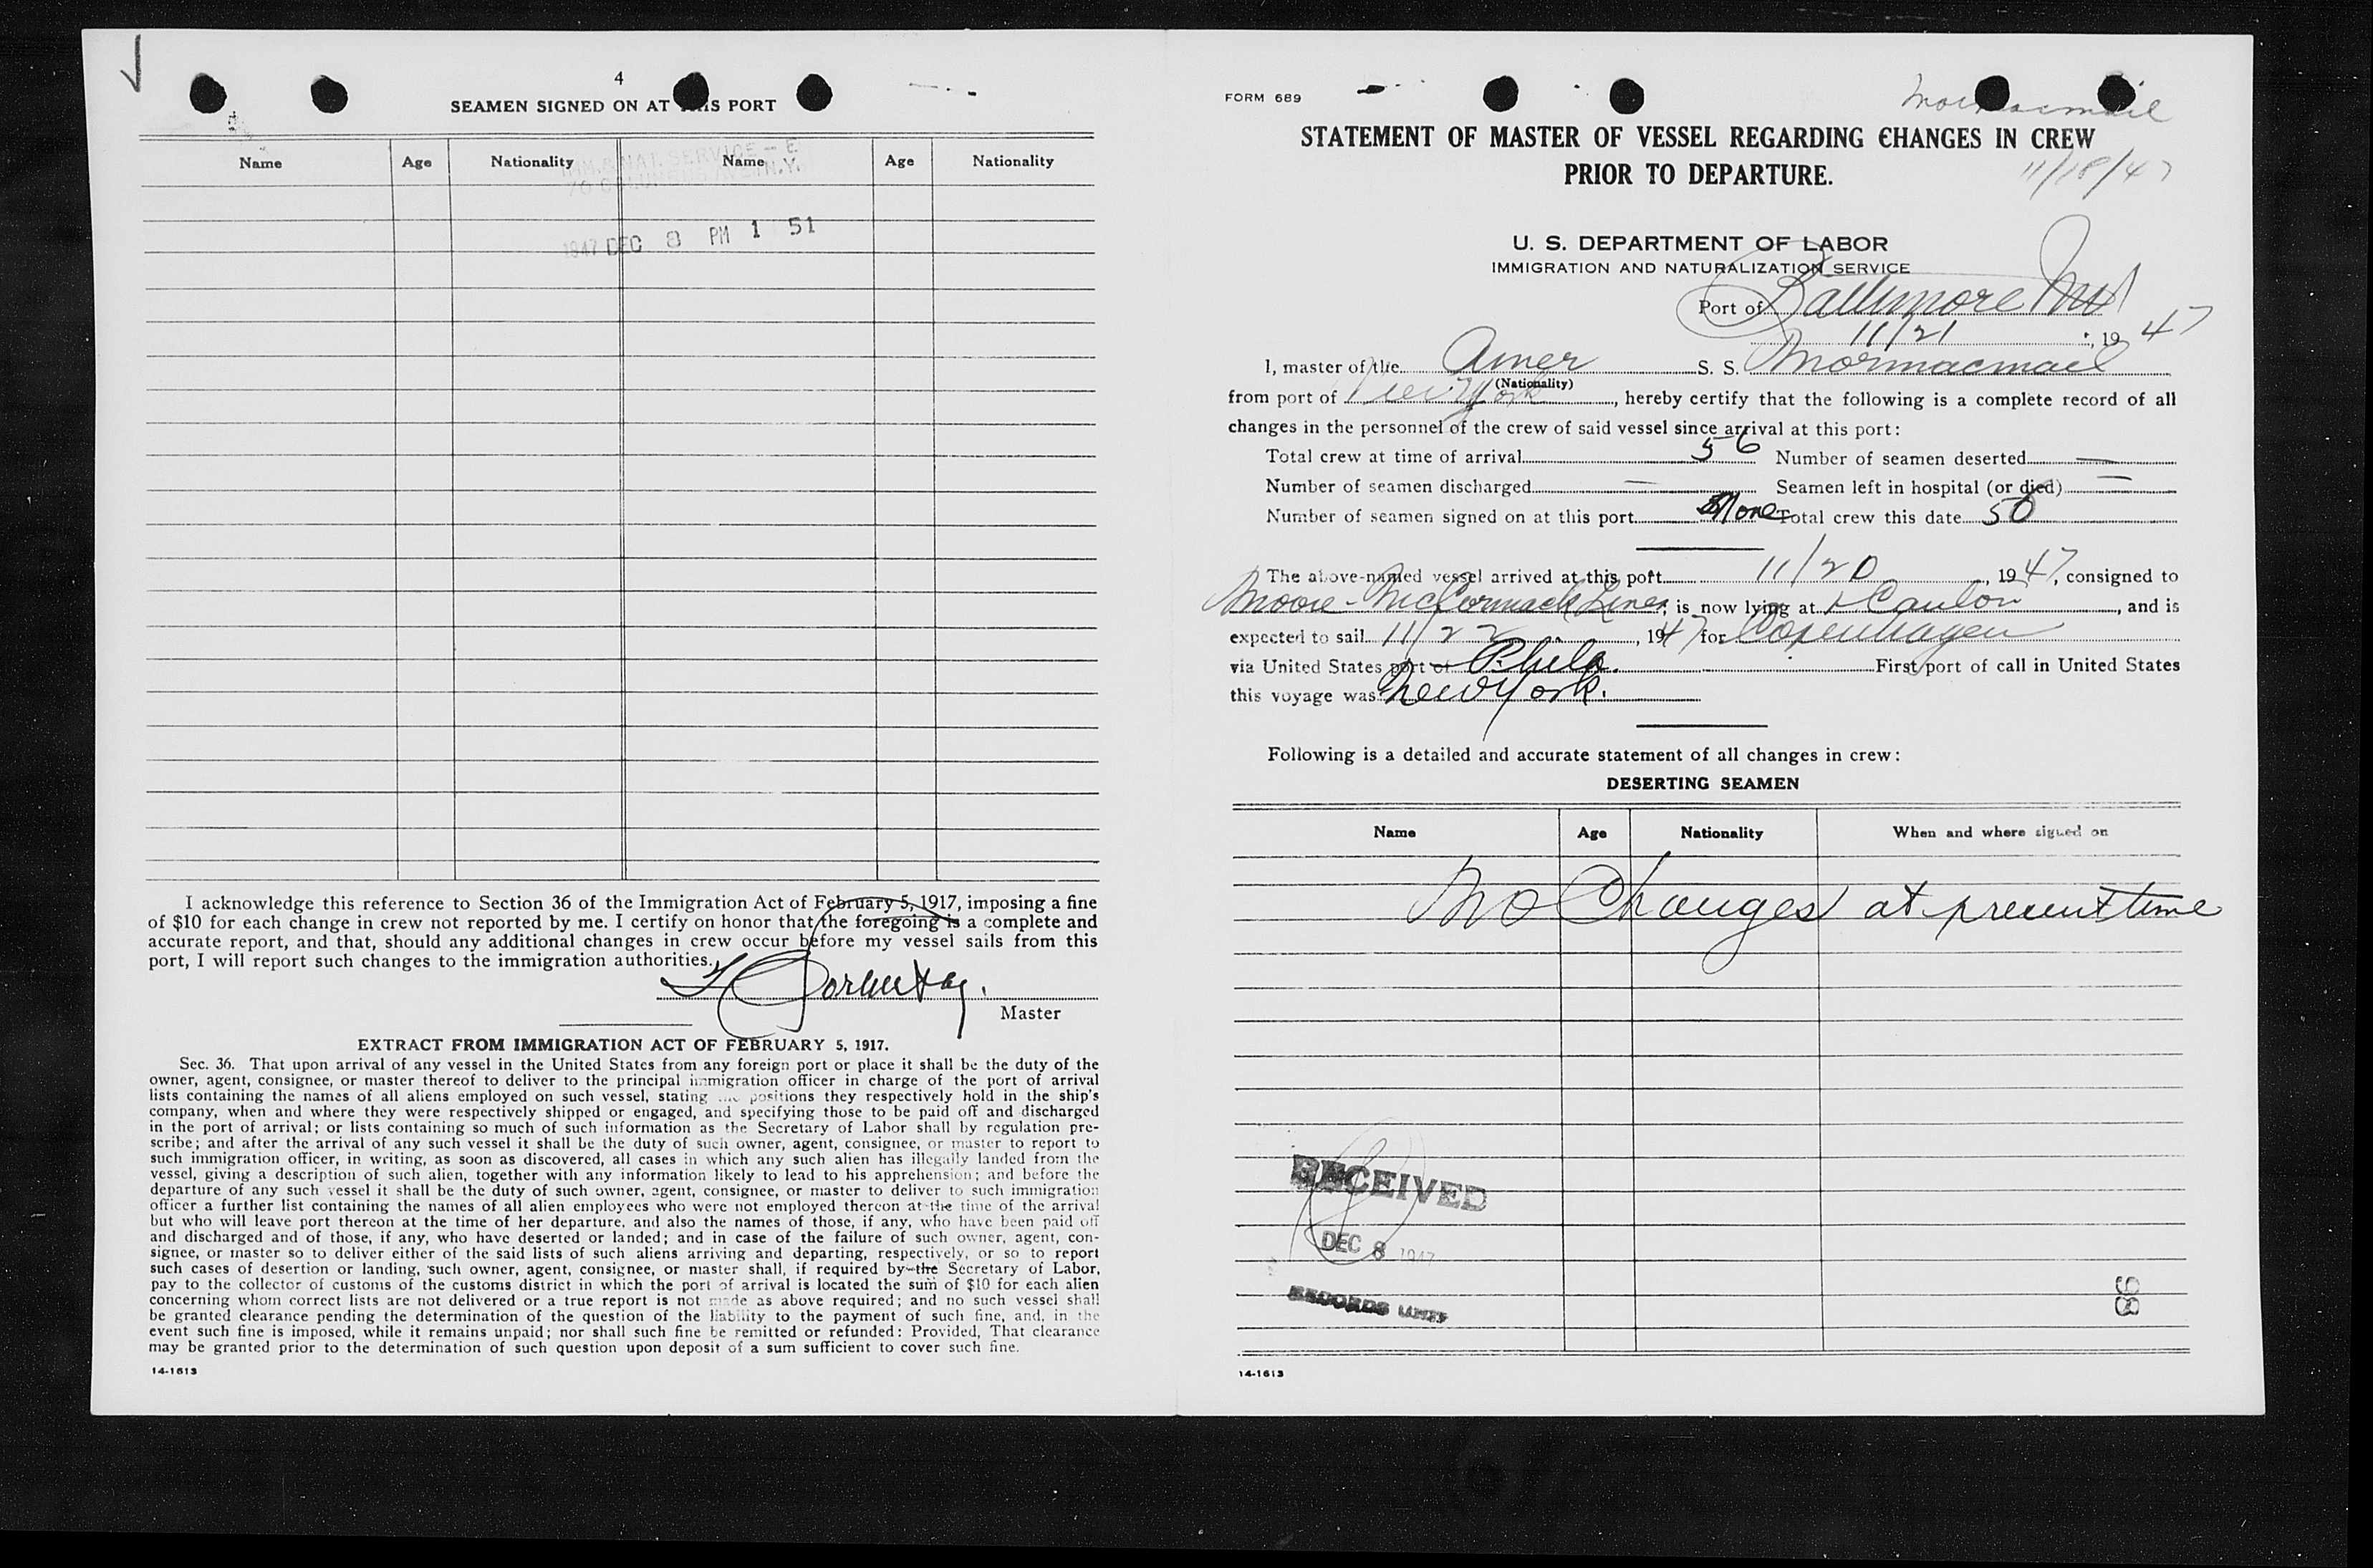 4
SEAMEN SIGNED ON AT THIS PORT
Name Age Nationality Name Age Nationality
IMM. & NAT. SERVICE - E
70 COLUMBUS AVE. N.Y.
1947 DEC 8 PM 1 51
I acknowledge this reference to Section 36 of the Immigration Act of February 5, 1917, imposing a fine
of $10 for each change in crew not reported by me. I certify on honor that the foregoing is a complete and
accurate report, and that, should any additional changes in crew occur before my vessel sails from this
port, I will report such changes to the immigration authorities.
Master
EXTRACT FROM IMMIGRATION ACT OF FEBRUARY 5, 1917.
Sec. 36. That upon arrival of any vessel in the United States from any foreign port or place it shall be the duty of the
owner, agent, consignee, or master thereof to deliver to the principal immigration officer in charge of the port of arrival
lists containing the names of all aliens employed on such vessel, stating the positions they respectively hold in the ship's
company, when and where they were respectively shipped or engaged, and specifying those to be paid off and discharged
in the port of arrival; or lists containing so much of such information as the Secretary of Labor shall by regulation pre-
scribe; and after the arrival of any such vessel it shall be the duty of such owner, agent, consignee, or master to report to
such immigration officer, in writing, as soon as discovered, all cases in which any such alien has illegally landed from the
vessel, giving a description of such alien, together with any information likely to lead to his apprehension; and before the
departure of any such vessel it shall be the duty of such owner, agent, consignee, or master to deliver to such immigration
officer a further list containing the names of all alien employees who were not employed thereon at the time of the arrival
but who will leave port thereon at the time of her departure, and also the names of those, if any, who have been paid off
and discharged and of those, if any, who have deserted or landed; and in case of the failure of such owner, agent, con-
signee, or master so to deliver either of the said lists of such aliens arriving and departing, respectively, or so to report
such cases of desertion or landing, such owner, agent, consignee, or master shall, if required by the Secretary of Labor,
pay to the collector of customs of the customs district in which the port of arrival is located the sum of $10 for each alien
concerning whom correct lists are not delivered or a true report is not made as above required; and no such vessel shall
be granted clearance pending the determination of the question of the liability to the payment of such fine, and, in the
event such fine is imposed, while it remains unpaid; nor shall such fine be remitted or refunded: Provided, That clearance
may be granted prior to the determination of such question upon deposit of a sum sufficient to cover such fine.
14-1613
FORM 689
Mormacmail
STATEMENT OF MASTER OF VESSEL REGARDING CHANGES IN CREW
PRIOR TO DEPARTURE.
11/18/47
U. S. DEPARTMENT OF LABOR
IMMIGRATION AND NATURALIZATION SERVICE
Port of Baltimore Md
11/21, 1947
I, master of the Amer S. S. Mormacmail
(Nationality)
from port of New York, hereby certify that the following is a complete record of all
changes in the personnel of the crew of said vessel since arrival at this port:
Total crew at time of arrival 56 Number of seamen deserted —
Number of seamen discharged — Seamen left in hospital (or died) —
Number of seamen signed on at this port None Total crew this date 56
The above-named vessel arrived at this port 11/20, 1947, consigned to
Moore-McCormack Lines, is now lying at Canton, and is
expected to sail 11/22, 1947 for Copenhagen
via United States port of Phila. First port of call in United States
this voyage was New York.
Following is a detailed and accurate statement of all changes in crew:
DESERTING SEAMEN
Name Age Nationality When and where signed on
No Changes at present time
RECEIVED
DEC 8 1947
RECORDS UNIT
89
14-1613